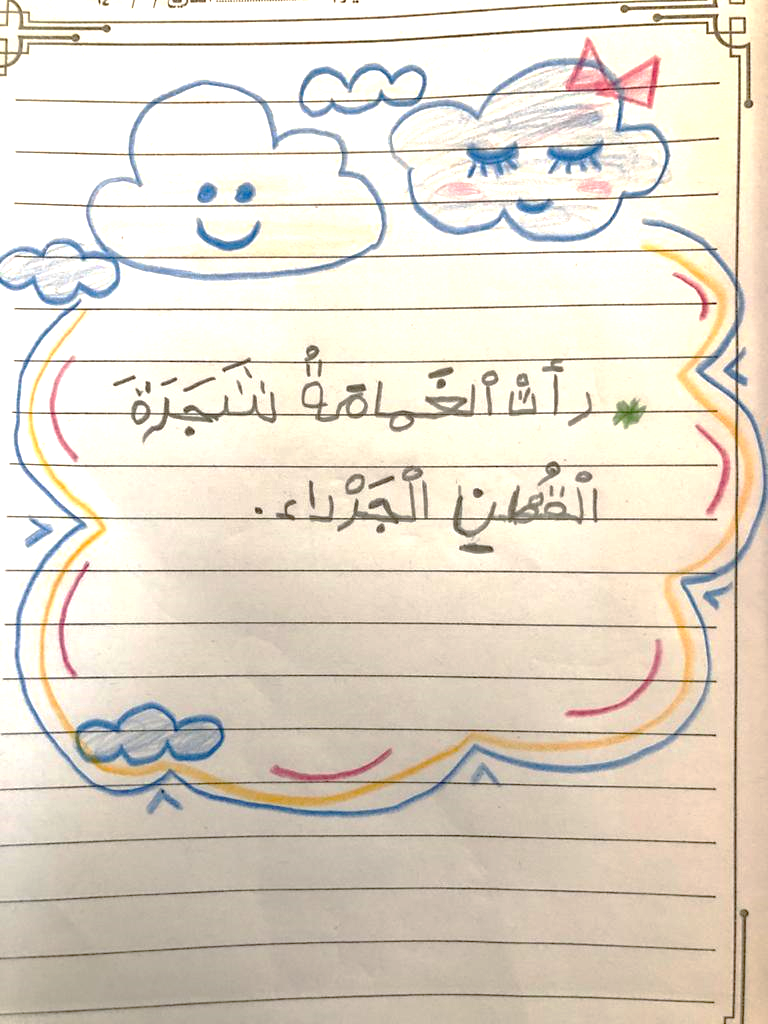 رأتْ الْغَمامَةْ شَجَرَةَ
الْقُطنِ الْجَرْداء.